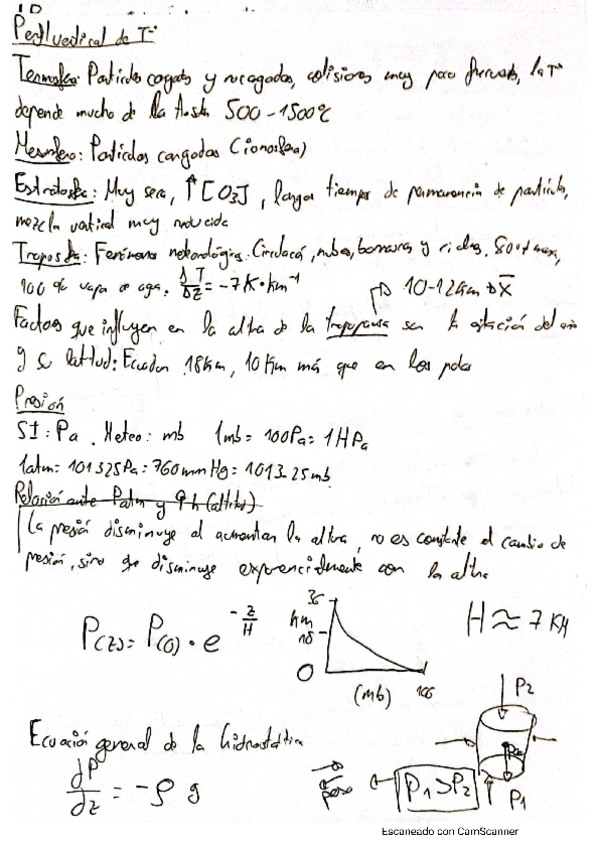 Perfil vertical de Tª
Termosfera: Partículas cargadas y recargadas, colisiones muy poco frecuentes, la Tª
depende mucho de la 500-1500ºC
Mesosfera: Partículas cargadas (ionosfera)
Estratosfera: Muy seca, ↑[O3], largos tiempos de permanencia de partículas,
mezcla vertical muy reducida
Troposfera: Fenómenos meteorológicos. Circulación, nubes, borrascas y ciclones. 80% masa,
100% vapor de agua. ΔT/ΔZ = -7K·km⁻¹ 10-12km X̄
Factores que influyen en la altura de la tropopausa son la estación del año
y su latitud: Ecuador 18km, 10km más que en los polos
Presión
SI: Pa. Meteo: mb 1mb = 100Pa = 1HPa
1atm = 101325Pa = 760mmHg = 1013.25mb
Relación entre Patm y h (altitud)
La presión disminuye al aumentar la altura, no es constante el cambio de
presión, sino que disminuye exponencialmente con la altura
P(z) = P(0) · e^(-z/H) H ≈ 7 KM
36
km
18
0
(mb)
Ecuación general de la hidrostática
dP/dz = -ρ g
P2
peso P1>P2
P1
Escaneado con CamScanner